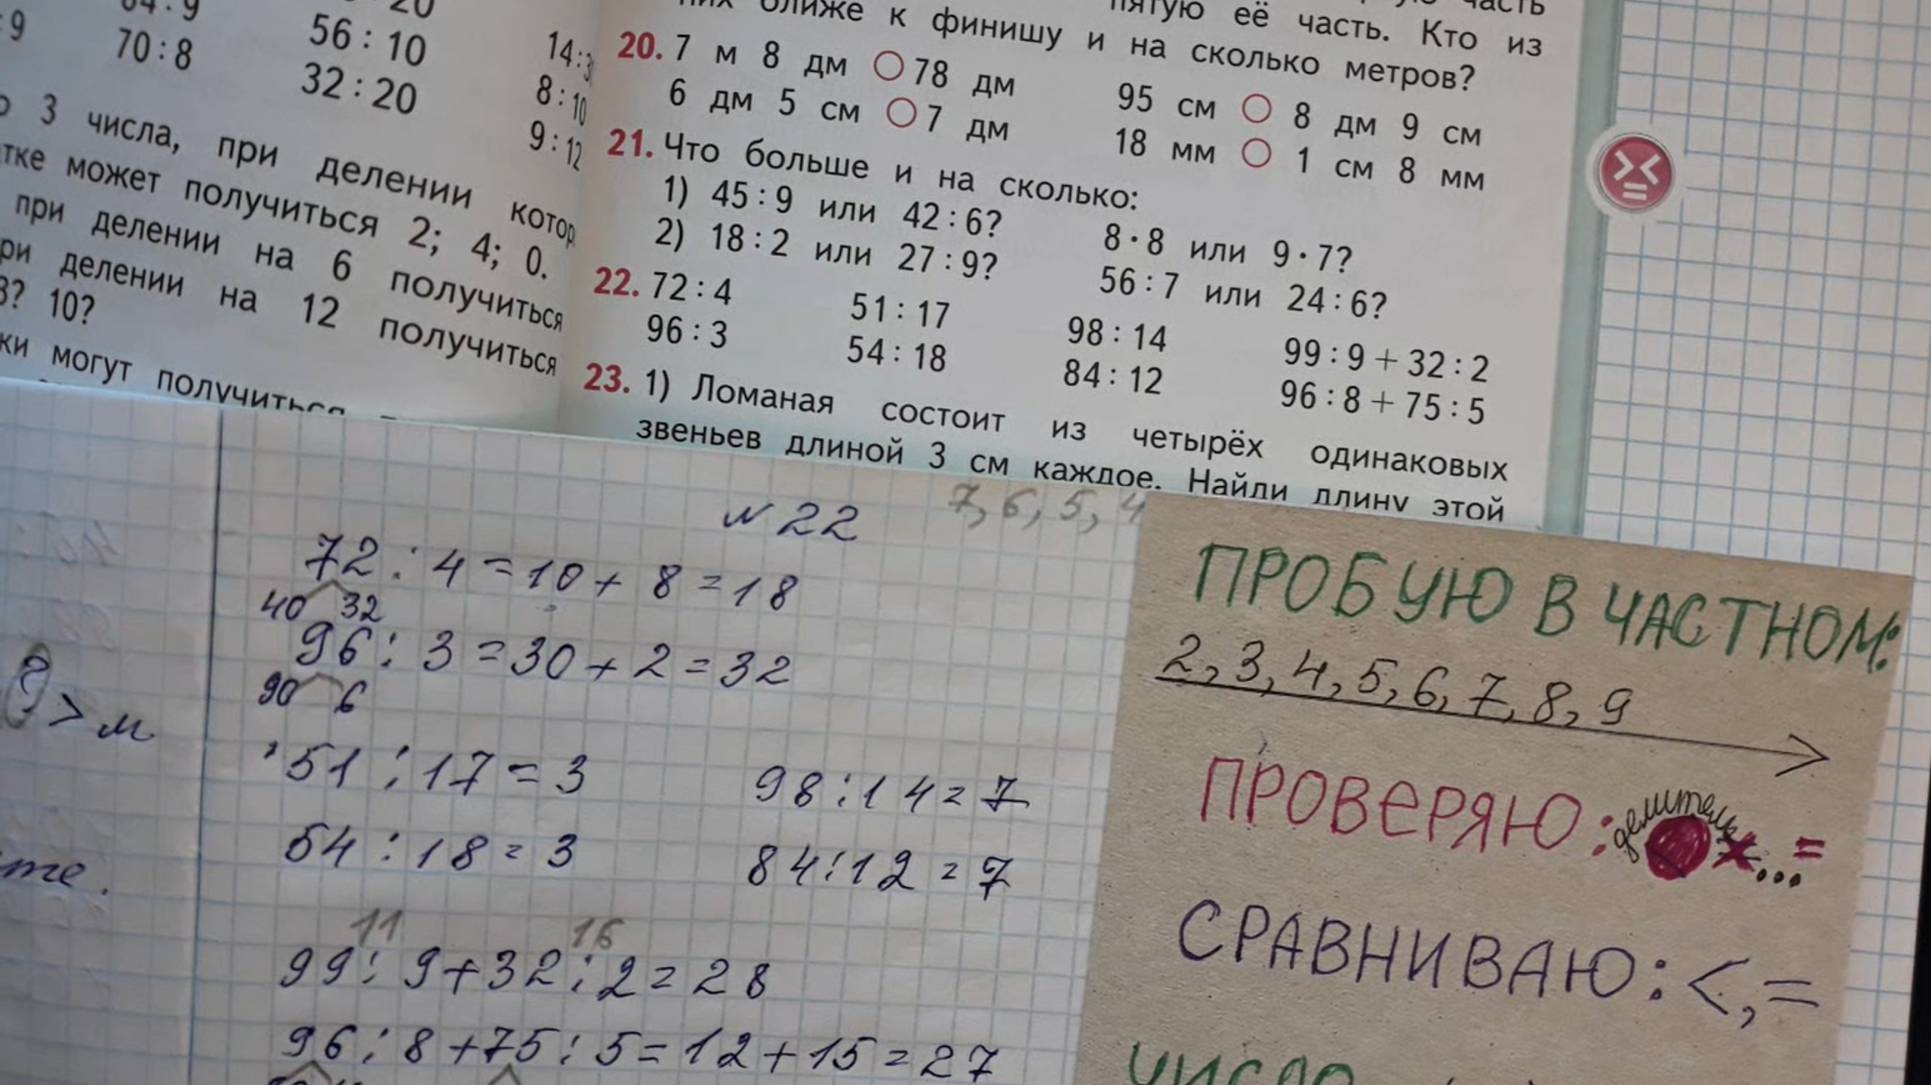 70 : 8
56 : 10
32 : 20
8 : 10
9 : 12
3 числа, при делении
может получиться 2; 4; 0.
при делении на 6 получиться
делении на 12 получиться
10?
могут получиться
ближе к финишу и на сколько метров?
её часть. Кто из
20. 7 м 8 дм ○ 78 дм 95 см ○ 8 дм 9 см
6 дм 5 см ○ 7 дм 18 мм ○ 1 см 8 мм
21. Что больше и на сколько:
1) 45 : 9 или 42 : 6? 8 · 8 или 9 · 7?
2) 18 : 2 или 27 : 9? 56 : 7 или 24 : 6?
22. 72 : 4 51 : 17 98 : 14 99 : 9 + 32 : 2
96 : 3 54 : 18 84 : 12 96 : 8 + 75 : 5
23. 1) Ломаная состоит из четырёх одинаковых
звеньев длиной 3 см каждое. Найди длину этой
7, 6, 5, 4
№ 22
72 : 4 = 10 + 8 = 18
40 32
96 : 3 = 30 + 2 = 32
90 6
51 : 17 = 3 98 : 14 = 7
54 : 18 = 3 84 : 12 = 7
11 16
99 : 9 + 32 : 2 = 28
96 : 8 + 75 : 5 = 12 + 15 = 27
> м
ПРОБУЮ В ЧАСТНОМ:
2, 3, 4, 5, 6, 7, 8, 9
ПРОВЕРЯЮ: делитель × ... =
СРАВНИВАЮ: <, =
ЧИСЛО